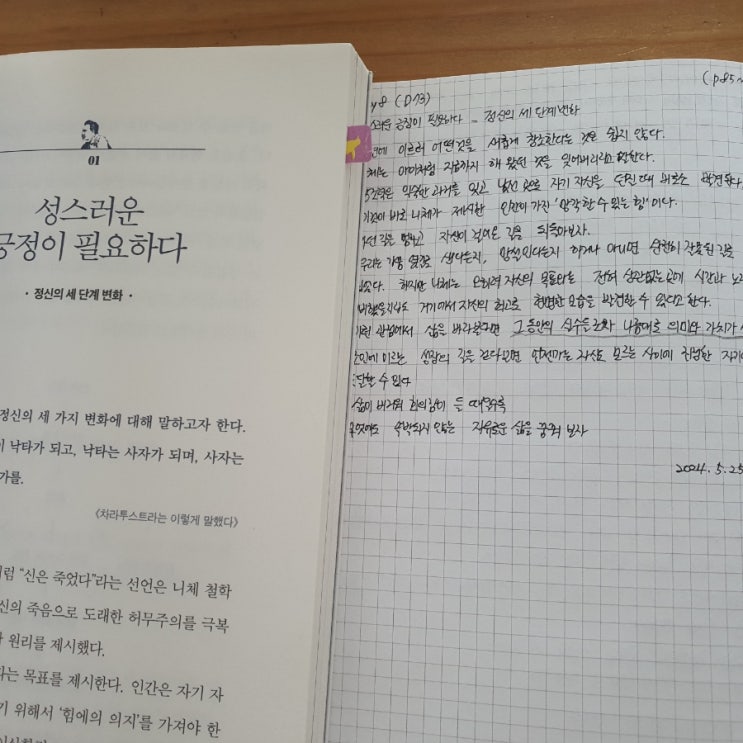 01
성스러운
긍정이 필요하다
· 정신의 세 단계 변화 ·
정신의 세 가지 변화에 대해 말하고자 한다.
낙타가 되고, 낙타는 사자가 되며, 사자는
가를.
《차라투스트라는 이렇게 말했다》
럼 “신은 죽었다”라는 선언은 니체 철학
신의 죽음으로 도래한 허무주의를 극복
원리를 제시했다.
라는 목표를 제시한다. 인간은 자기 자
기 위해서 ‘힘에의 의지’를 가져야 한
(p85~
y8 (D73)
스러운 긍정이 필요하다 - 정신의 세 단계 변화
에 이르러 어떤것을 새롭게 창조한다는 것은 쉽지 않다.
체는 아이처럼 지금까지 해 왔던 것을 잊어버리라고 말한다.
익숙한 과거를 잊고 낯선 곳으로 자기 자신을 던질 때 비로소 발견된다.
이 바로 니체가 제시한 인간이 가진 '망각할 수 있는 힘' 이다.
자신이 걸어온 길을 되돌아보자.
우리는 가끔 잘못 샀다든지, 망설인다든지 하거나 아니면 순전히 잘못된 길을
있다. 하지만 니체는 오히려 자신의 목표와는 전혀 상관없는 곳에 시간과 노력
거기에서 자신의 최고로 현명한 모습을 발견할 수 있다고 한다.
관점에서 삶을 바라본다면 그동안의 실수들조차 나름대로 의미와 가치가
에 이르는 성장의 길을 걷다보면 언젠가는 자신도 모르는 사이에 진정한 자기
달할 수 있다
삶이 버겁고 회의감이 들 때일수록
속박되지 않는 자유로운 삶을 꿈꿔 보자
2024. 5. 25